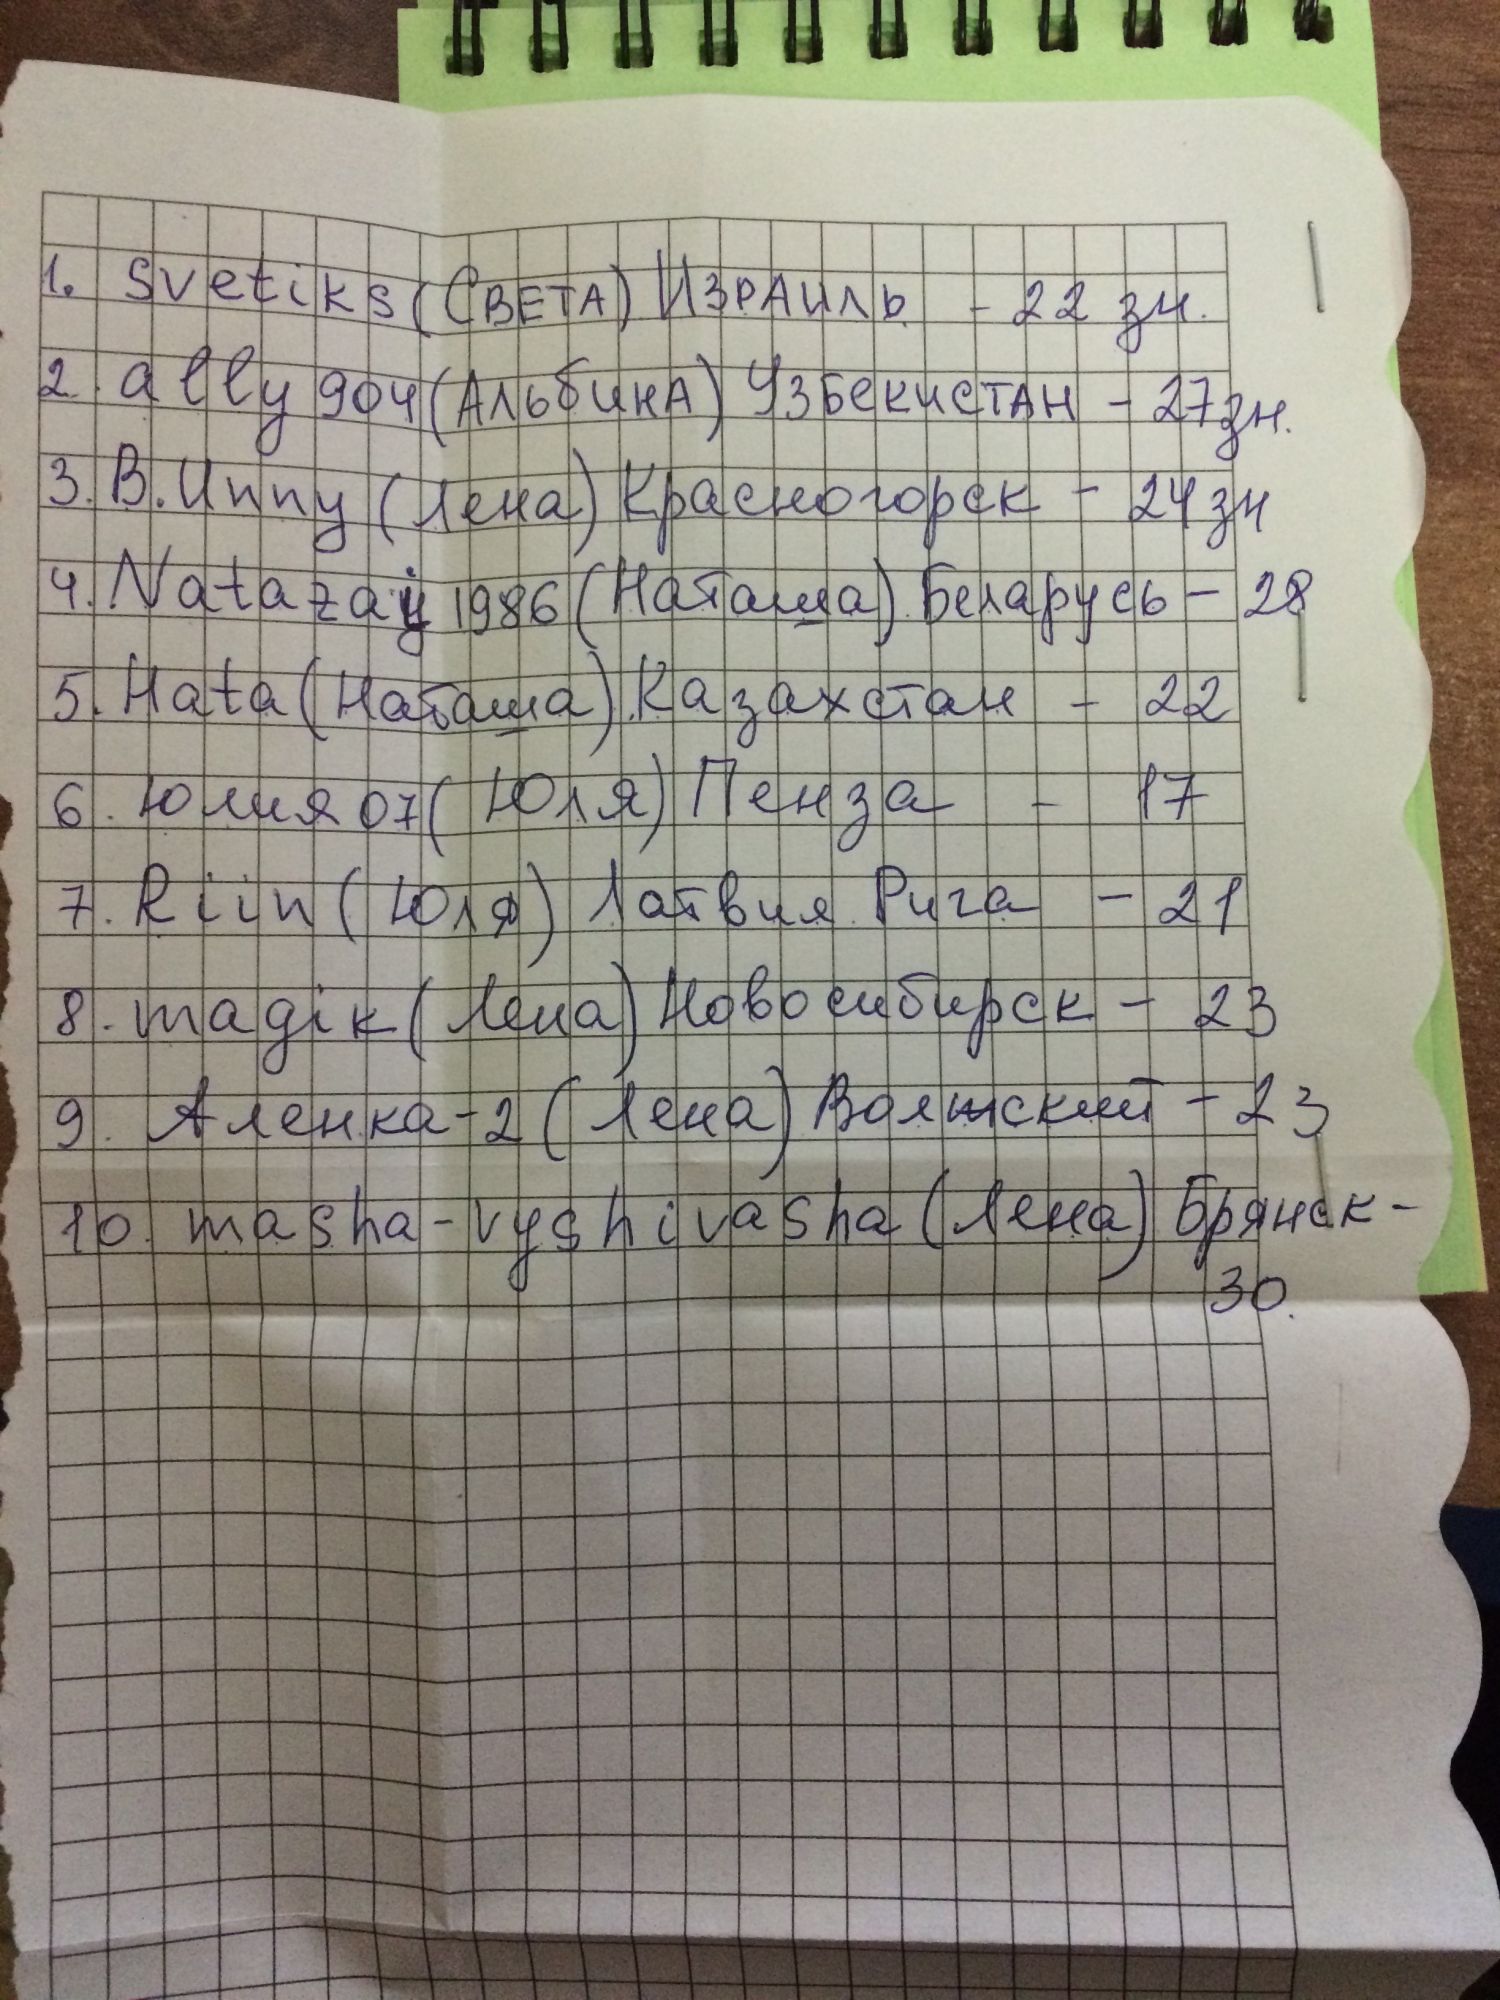 1. Svetiks (Света) Израиль - 22 зн.
2. ally904 (Альбина) Узбекистан - 27 зн.
3. В.Иппу (Лена) Красногорск - 24 зн
4. Natazaŭ 1986 (Наташа) Беларусь - 28
5. Hata (Наташа) Казахстан - 22
6. Юлия07 (Юля) Пенза - 17
7. Riin (Юля) Латвия Рига - 21
8. magik (Лена) Новосибирск - 23
9. Аленка-2 (Лена) Волжский - 23
10. masha-vyshivasha (Лена) Брянск -
30.